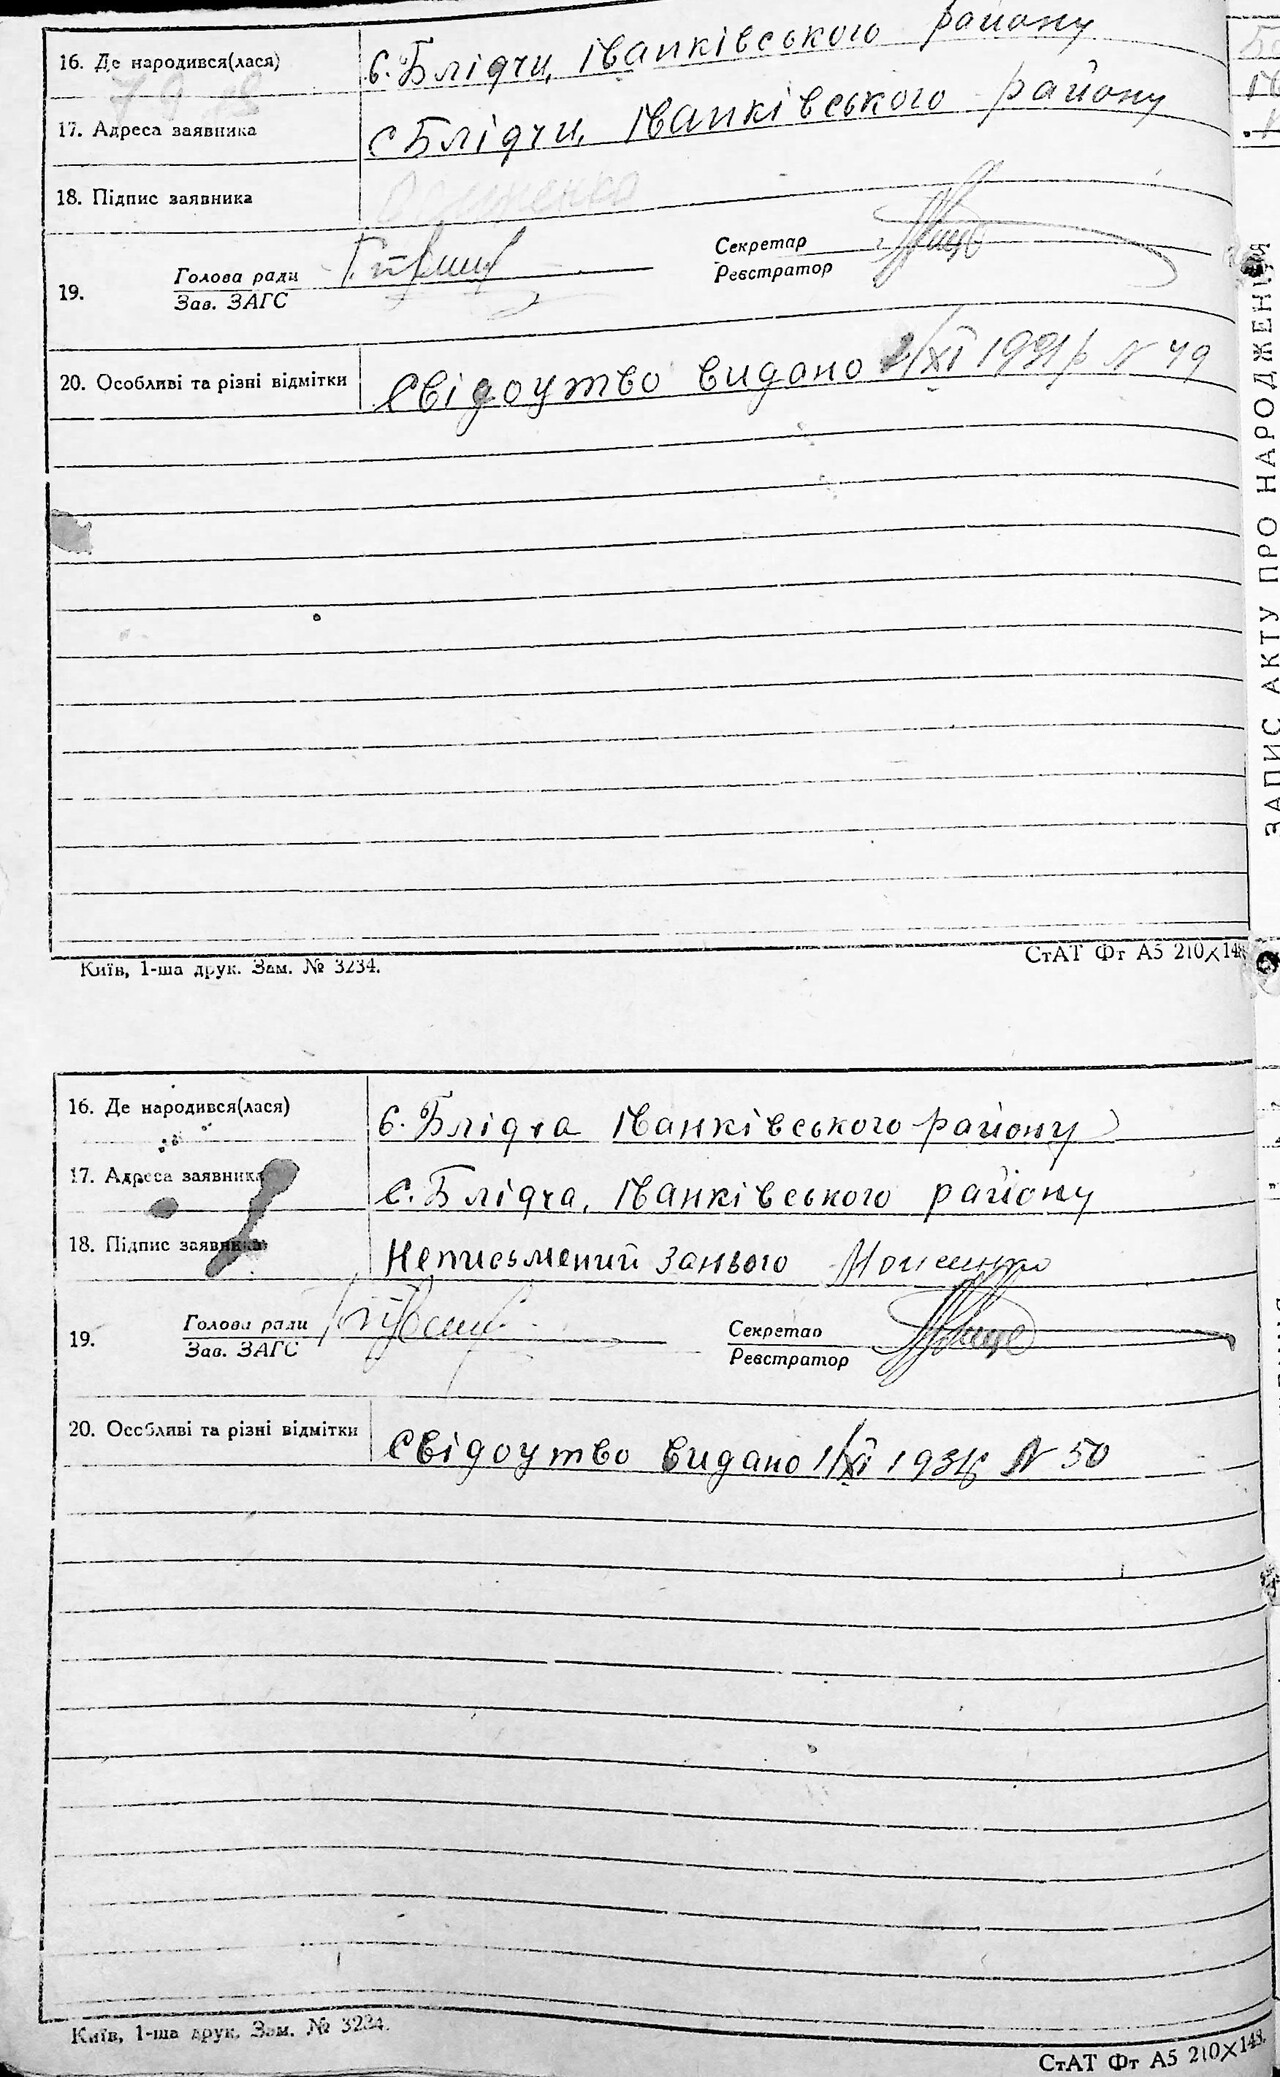 16. Де народився(лася) с. Блідчи, Іванківського району
17. Адреса заявника с Блідчи, Іванківського району
18. Підпис заявника
19. Голова ради
Зав. ЗАГС
Секретар
Реєстратор
20. Особливі та різні відмітки Свідоцтво видано /XI 193 р N 49
Київ, 1-ша друк. Зам. № 3234.
СтАТ Фт А5 210×148
ЗАПИС АКТУ ПРО НАРОДЖЕННЯ
16. Де народився(лася) с. Блідча Іванківського району
17. Адреса заявника с. Блідча, Іванківського району
18. Підпис заявника Неписьмений занього
19. Голова ради
Зав. ЗАГС
Секретар
Реєстратор
20. Особливі та різні відмітки Свідоцтво видано 1/XI 193 N 50
Київ, 1-ша друк. Зам. № 3234.
СтАТ Фт А5 210×148.